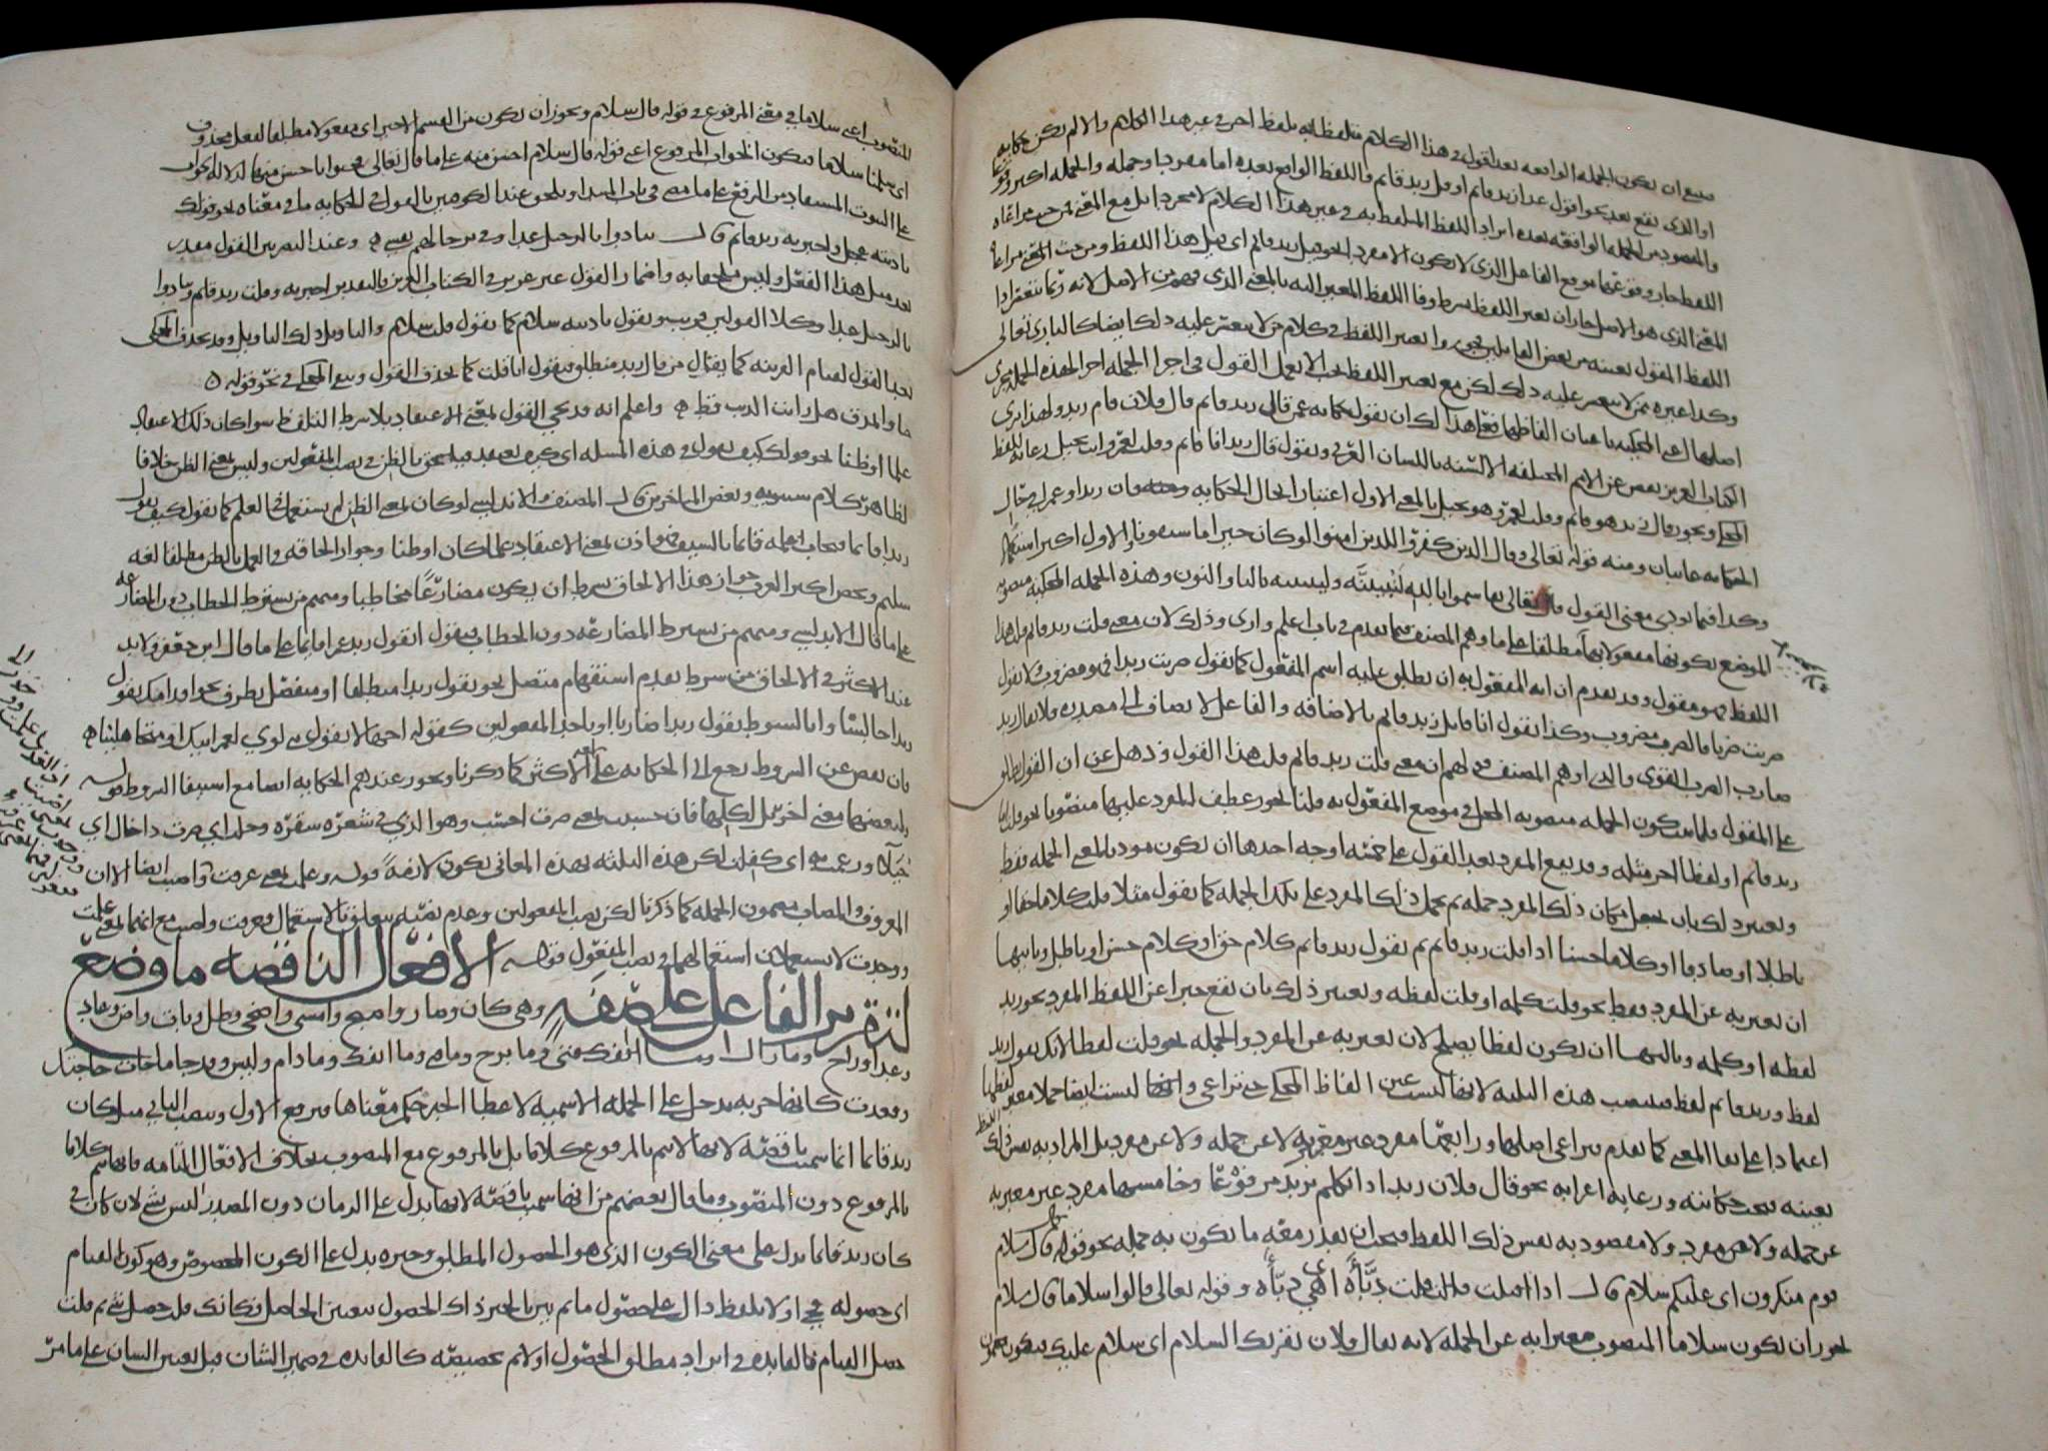 ينبغي ان يكون الجملة الواقعة بعد القول في هذا الكلام متلفظا به بلفظ اخر في غير هذا الكلام والا لم يكن حكاية
او الذي يقع بعد نحو اقول غدا زيد قائم او قل زيد قائم واللفظ الواقع بعده اما مفرد او جملة والجملة اكثر وقوعا
والمقصود من الجملة الواقعة بعده ايراد اللفظ المتلفظ به في غير هذا الكلام لا مجردا بل مع المعنى من حيث مراعاة
اللفظ جاز وقوعها موقع الفاعل الذي لا يكون الا مفردا نحو قيل زيد قائم اي قيل هذا اللفظ ومن حيث المعنى مراعاة
المعنى الذي هو الاصل جاز ان يغير اللفظ بشرط وفا اللفظ المغير اليه بالمعنى الذي فهم من الاصل لانه ربما يتعسر ادا
اللفظ المقول بعينه من بعض القائلين وتغيير اللفظ في كلام من لا يتعسر عليه ذلك ايضا كالباري تعالى
وكذا غيره ممن لا يتعسر عليه ذلك لكن مع تغيير اللفظ يجب الا يعمل القول في اجزا الجملة اجرا لهذه الجملة مجرى
اصلها اعني المحكية باعيان الفاظها فعلى هذا لك ان تقول حكاية عمن قال زيد قائم قال فلان قام زيد ولهذا ترى
الكتاب العزيز يقص عن الامم المختلفة الالسنة باللسان العربي وتقول قال زيد انا قائم وقلت لعمرو انت بخيل رعاية للفظ
المحكي ويجوز قال زيد هو قائم وقلت لعمرو هو بخيل بالمعنى الاول اعتبارا لحال الحكاية فان زيدا وعمرا في حال
الحكاية غائبان ومنه قوله تعالى وقال الذين كفروا للذين امنوا لو كان خيرا ما سبقونا اليه والاول اكثر استعمالا
وكذا فيما يودي معنى القول قال تعالى تقاسموا بالله لنبيتنه وليبيتنه باليا والنون وهذه الجملة المحكية منصوبة
الموضع بكونها مفعولا بها لا مفعولا مطلقا على ما وهم المصنف فيما تقدم في باب اعلم وارى وذلك لان معنى قلت زيد قائم قلت هذا
اللفظ فهو مقول وقد تقدم ان اية المفعول به ان يطلق عليه اسم المفعول كما تقول ضربت زيدا فهو مضروب ولا تقول
ضربت ضربا فالضرب مضروب وكذا تقول انا قائل زيد قائم بالاضافة والفاعل لا يضاف الى مصدره فلا يقال زيد
ضارب الضرب القوي والذي اوهم المصنف قولهم ان معنى قلت زيد قائم قلت هذا القول وذهل عن ان القول يطلق
على المقول فلما تكون الجملة منصوبة المحل في موضع المفعول به قلنا يجوز عطف المفرد عليها منصوبا نحو قلت
زيد قائم او لفظا اخر مثله وقد يقع المفرد بعد القول على خمسة اوجه احدها ان يكون موديا لمعنى الجملة فقط
ويعتبر ذلك بان مكان ذلك المفرد جملة ثم يحمل ذلك المفرد على تلك الجملة كما تقول مثلا قلت كلاما حقا او
باطلا او صادقا او كلاما حسنا اذا قلت زيد قائم ثم تقول زيد قائم كلام حق او كلام حسن او باطل وثانيها
ان يعبر به عن المفرد فقط نحو قلت كلمة او قلت لفظة ويعتبر ذلك بان يقع خبرا عن اللفظ المفرد نحو زيد
لفظة او كلمة وثالثها ان يكون لفظا يصلح لان يعبر به عن المفرد والجملة نحو قلت لفظا لانك تقول زيد
لفظ وزيد قائم لفظ فينصب هذه الثلثة لانها ليست عين الفاظ المحكي حتى تراعى وانها ليست ايضا جملا مقول لفظها
اعتمادا على بقا المعنى كما تقدم فيراعى اصلها ورابعها مفرد غير معبر به لا عن جملة ولا عن مفرد بل المراد به نفس ذلك اللفظ
بعينه فيجب حكايته ورعاية اعرابه نحو قال فلان زيد اذا تكلم بزيد مرفوعا وخامسها مفرد غير معبر به
عن جملة ولا عن مفرد ولا مقصود به نفس ذلك اللفظ فيجب ان يقدر معه ما يكون به جملة نحو قوله قال سلام
قوم منكرون اي عليكم سلام قال اذا اقبلت قلت دباة اي هي دباة وقوله تعالى قالوا سلاما قال سلام
يجوز ان يكون سلاما المنصوب معبرا به عن الجملة لانه يقال فلان يقرئك السلام اي سلام عليك فيكون
المنصوب اعني سلاما في معنى المرفوع في قوله قال سلام ويجوز ان يكون من القسم الاخير اي مفعولا مطلقا لفعل محذوف
اي سلمنا سلاما فيكون الجواب المرفوع اعني قوله قال سلام احسن منه على ما قال تعالى فحيوا باحسن منها لدلالة الجواب
على الثبوت المستفاد من الرفع على ما مضى في باب المبتدا ويلحق عند الكوفيين بالقول في الحكاية ما في معناه نحو قولك
ناديته عجل واخبرته زيد قائم قال تنادوا بالرحيل غدا وفي ترحالهم نفسي وعند البصريين القول مقدر
بعد مثل هذا الفعل وليس ملحقا به واضمار القول غير عزيز في الكتاب العزيز فالتقدير اخبرته وقلت زيد قائم وتنادوا
بالرحيل غدا وكلا القولين قريب وتقول ناديته سلام كما تقول قلت سلام والتاويل ذلك التاويل وقد يحذف المحكي
بعد القول لقيام القرينة كما يقال من قال زيد منطلق فتقول انا قلت كما يحذف القول ويبقى المحكي في نحو قوله
جاوا بمذق هل رايت الذيب قط واعلم انه قد يجي القول بمعنى الاعتقاد بلا شرط التلفظ سوا كان ذلك الاعتقاد
علما او ظنا نحو قولك كيف تقول في هذه المسلة اي كيف تعتقد فيلحق بالظن في نصب المفعولين وليس بمعنى الظن خلافا
لظاهر كلام سيبويه وبعض المتاخرين قال المصنف والاندلسي لو كان بمعنى الظن لم يستعمل في العلم كما تقول كيف تقول
زيدا قائما فيجاب اعلمه قائما بالسيف فهو اذن بمعنى الاعتقاد علما كان او ظنا وجواز الحاقه في العمل بالظن مطلقا لغة
سليم ويخص اكثر العرب جواز هذا الالحاق بشرط ان يكون مضارعا مخاطبا ومنهم من يشترط الخطاب دون المضارعة
على ما قال الاندلسي ومنهم من يشترط المضارعة دون الخطاب فيقول اتقول زيد عمرا قائما على ما قال ابن جعفر ولا بد
عند الاكثر في الالحاق من شرط تقدم استفهام متصل نحو تقول زيدا منطلقا او منفصل بظرف نحو اقدامك تقول
زيدا جالسا واما بالسوط تقول زيدا ضاربا او باحد المفعولين كقوله اجهالا تقول بني لوي لعمر ابيك ام متجاهلينا
فان نقص عن الشروط رجع الى الحكاية على الاكثر كما ذكرنا ويجوز عندهم الحكاية ايضا مع استيفا الشروط قوله
ولبعضها معنى اخر مثل كلها فان حسبت بمعنى صرت احسب وهو الذي في شعره شقرة وخلت اي صرت ذا خال اي
خيلا وزعمت به اي كفلت لكن هذه الثلثة بهذه المعاني تكون لازمة قوله وعلمت بمعنى عرفت وايضا الا ان
المعروف والمصاب مضمون الجملة كما ذكرنا لكن نصب المفعولين وعدم نصبه يتعلق بالاستعمال فعرفت واصبت مع انهما بمعنى علمت
ووجدت لا يستعملان استعمالهما في نصب المفعول قوله الافعال الناقصة ما وضع
لتقرير الفاعل على صفة وهي كان وصار واصبح وامسى واضحى وظل وبات واض وعاد
وغدا وراح وما زال وما انفك وما فتئ وما برح وما دام وليس وقد جا ما جات حاجتك
وقعدت كانها حربة تدخل على الجملة الاسمية لاعطا الخبر حكم معناها فترفع الاول وتنصب الثاني مثل كان
زيد قائما انما سميت ناقصة لانها لا تتم بالمرفوع كلاما بل بالمرفوع مع المنصوب بخلاف الافعال التامة فانها تتم كلاما
بالمرفوع دون المنصوب وما قال بعضهم من انها سميت ناقصة لانها تدل على الزمان دون المصدر ليس بشي لان كان في
كان زيد قائما يدل على معنى الكون الذي هو الحصول المطلق وخبره يدل على الكون المخصوص وهو كون القيام
اي حصوله فجي اولا بلفظ دال على حصول ما ثم بين بالخبر ذلك الحصول فكانك قلت حصل شي ثم قلت
حصل القيام فالفايدة في ايراد مطلق الحصول اولا ثم تخصيصه كالفايدة في ضمير الشان قبل تعيين الشان على ما مر